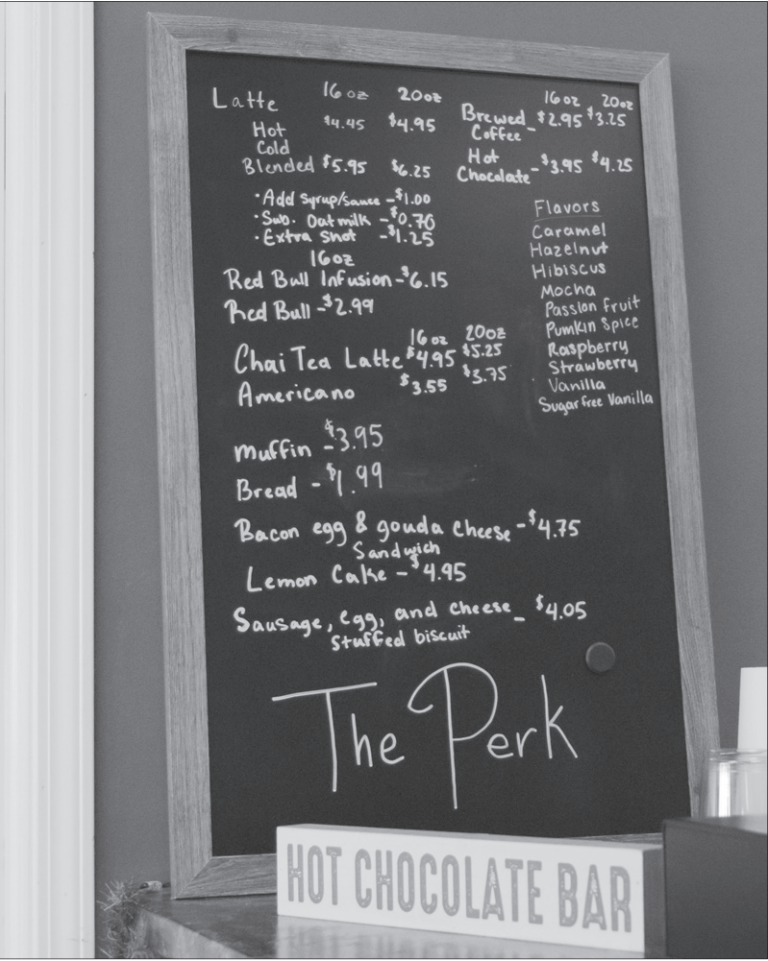 Latte 16 oz 20oz
Hot $4.45 $4.95
Cold
Blended $5.95 $6.25
·Add syrup/sauce -$1.00
·Sub. Oatmilk -$0.70
·Extra shot -$1.25
16oz
Red Bull Infusion-$6.15
Red Bull -$2.99
16 oz 20oz
Chai Tea Latte $4.95 $5.25
Americano $3.55 $3.75
muffin -$3.95
Bread - $1.99
Bacon egg & gouda cheese -$4.75
Sandwich
Lemon Cake - $4.95
Sausage, egg, and cheese - $4.05
Stuffed biscuit
16oz 20oz
Brewed - $2.95 $3.25
Coffee
Hot - $3.95 $4.25
Chocolate
Flavors
Caramel
Hazelnut
Hibiscus
Mocha
Passion fruit
Pumkin Spice
Raspberry
Strawberry
Vanilla
Sugar free Vanilla
The Perk
HOT CHOCOLATE BAR